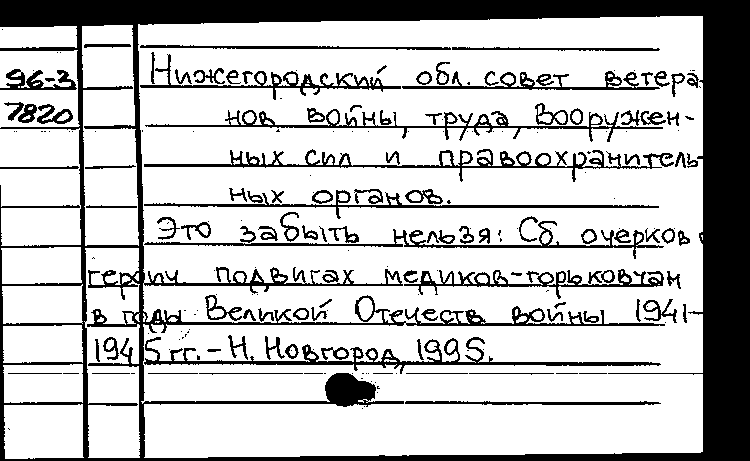 96-3
7820
Нижегородский обл. совет ветера-
нов войны, труда, Вооружен-
ных сил и правоохранитель-
ных органов.
Это забыть нельзя: Сб. очерков о
героич. подвигах медиков-горьковчан
в годы Великой Отечеств войны 1941-
1945 гг. - Н. Новгород, 1995.